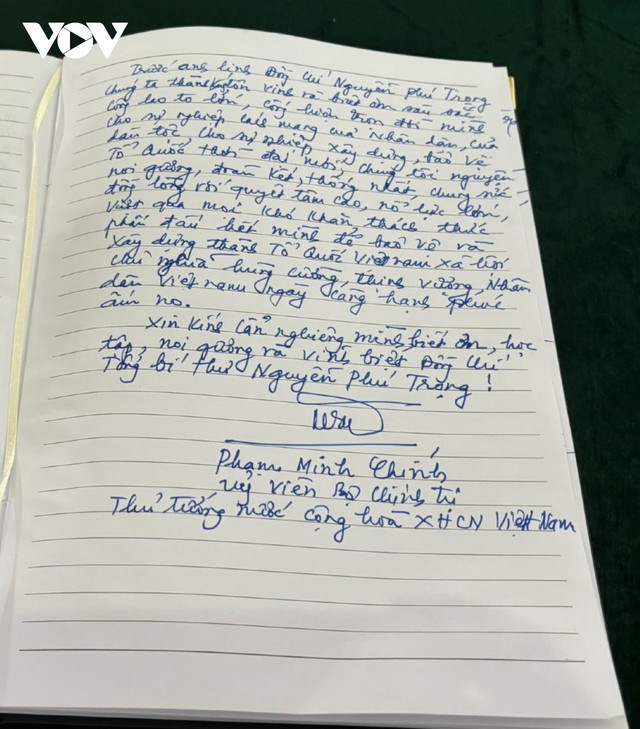 VOV
Trước anh linh Đồng chí Nguyễn Phú Trọng
Chúng ta thành kính tôn vinh và biết ơn sâu sắc
công lao to lớn, cống hiến trọn đời mình
cho sự nghiệp cách mạng của Nhân dân, của
dân tộc cho sự nghiệp xây dựng, bảo vệ
Tổ Quốc thời đại mới, chúng tôi nguyện
noi gương, đoàn kết, thống nhất, chung sức,
đồng lòng với quyết tâm cao, nỗ lực lớn,
vượt qua mọi khó khăn, thách thức
phấn đấu hết mình để bảo vệ và
xây dựng thành Tổ Quốc Việt nam xã hội
chủ nghĩa hùng cường, thịnh vượng, Nhân
dân Việt nam ngày càng hạnh phúc
ấm no.
Xin kính cẩn nghiêng mình biết ơn, học
tập, noi gương và vĩnh biệt Đồng chí
Tổng bí thư Nguyễn Phú Trọng !
Phạm Minh Chính
uỷ viên Bộ chính trị
Thủ tướng nước cộng hoà XHCN Việt Nam